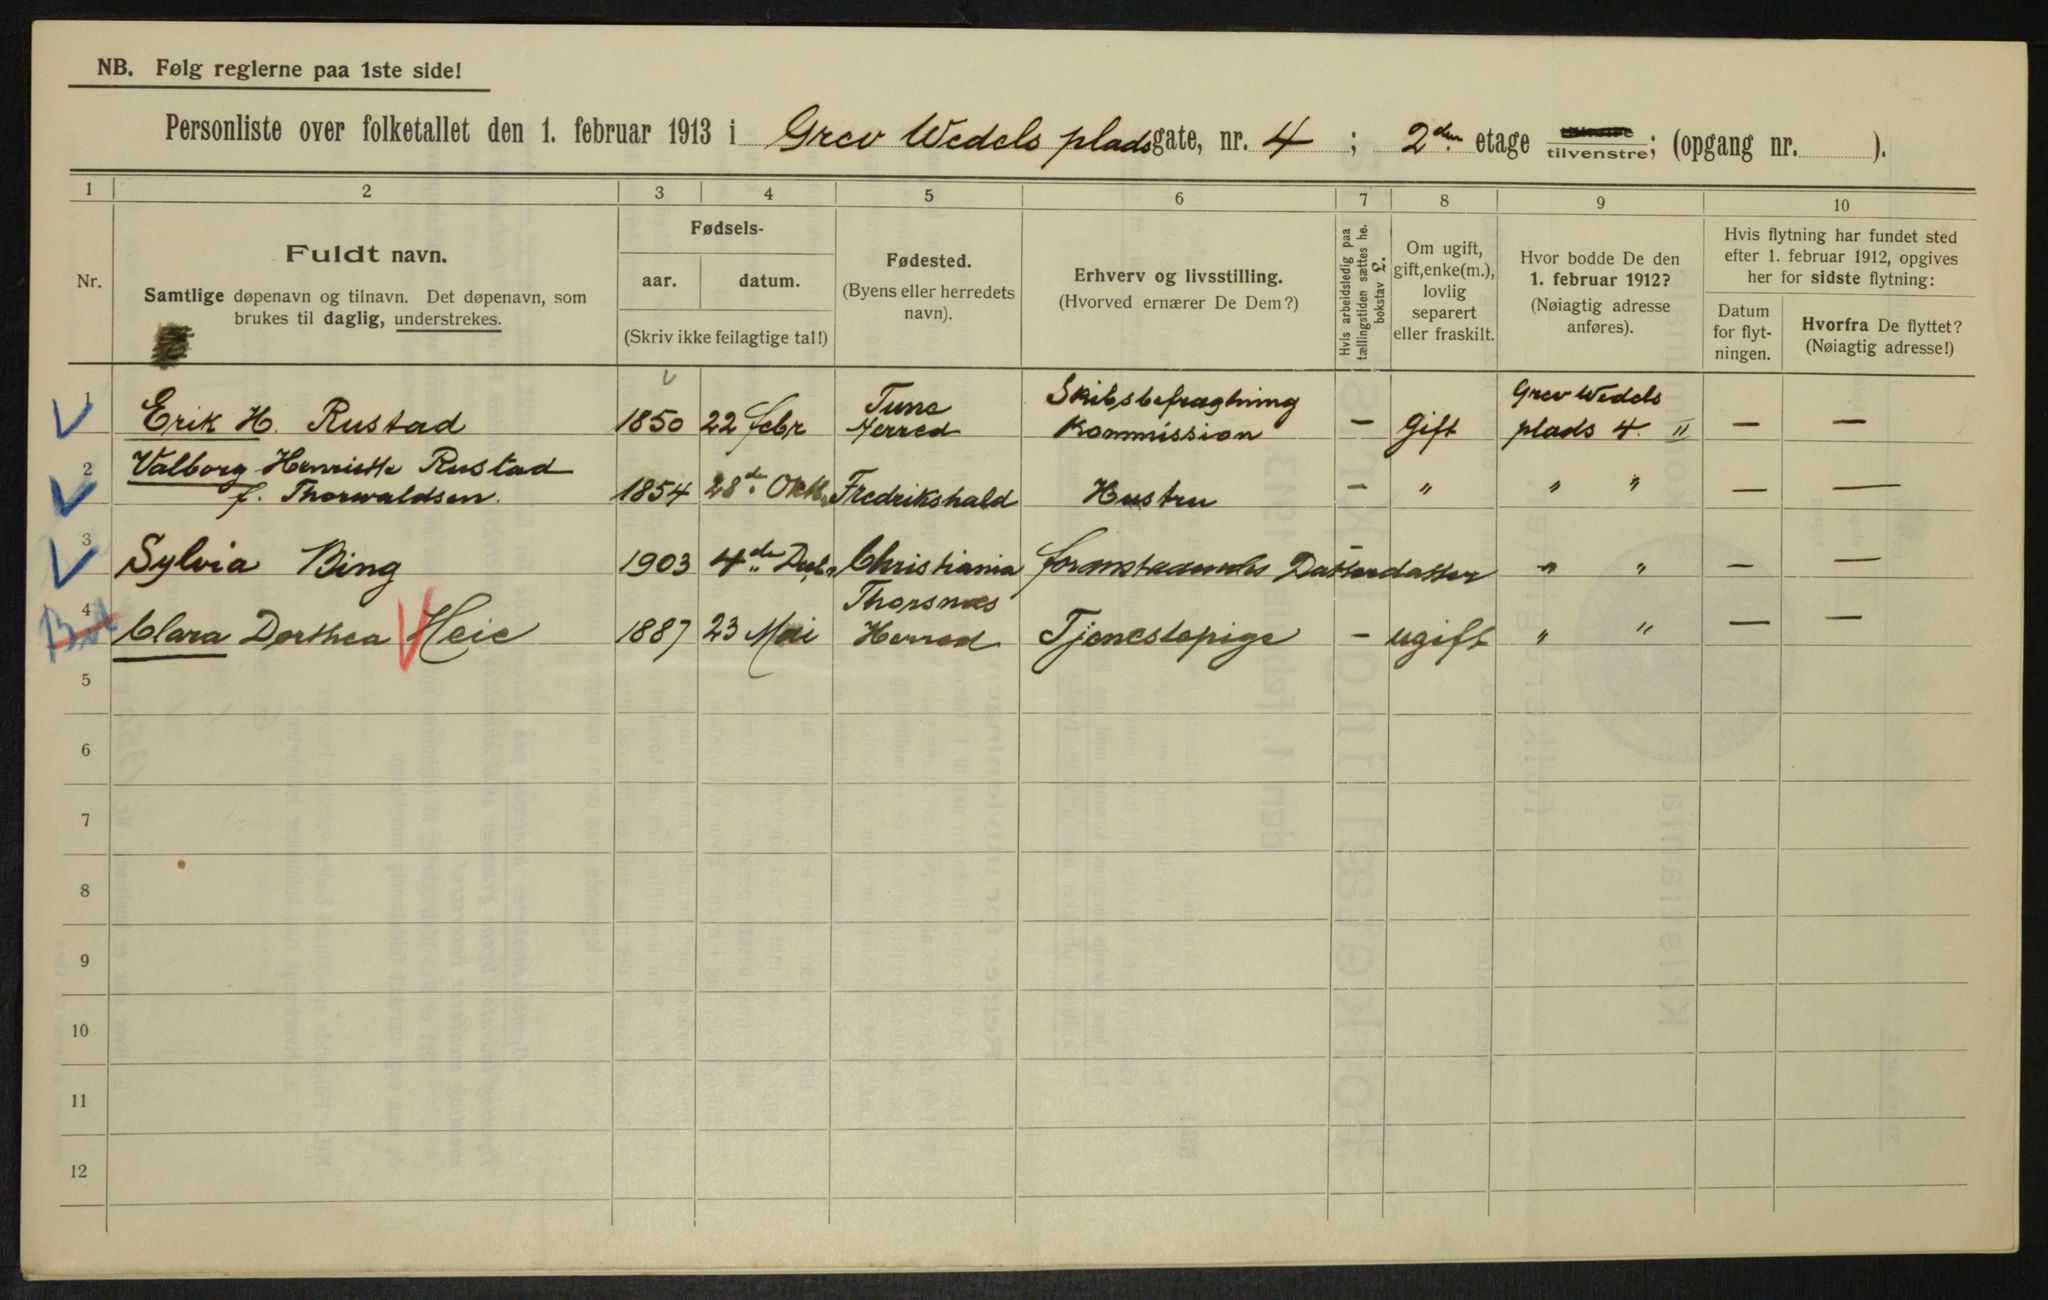 NB. Følg reglerne paa 1ste side!
Personliste over folketallet den 1. februar 1913 i Grev Wedels plads gate, nr. 4 ; 2den etage tilvenstre; (opgang nr. ).
1 2 3 4 5 6 7 8 9 10
Nr.
Fuldt navn.
Samtlige døpenavn og tilnavn. Det døpenavn, som
brukes til daglig, understrekes.
Fødsels-
aar. datum.
(Skriv ikke feilagtige tal!)
Fødested.
(Byens eller herredets
navn).
Erhverv og livsstilling.
(Hvorved ernærer De Dem?)
Hvis arbeidsledig paa
tællingstiden sættes he.
bokstav L.
Om ugift,
gift, enke(m.),
lovlig
separert
eller fraskilt.
Hvor bodde De den
1. februar 1912?
(Nøiagtig adresse
anføres).
Hvis flytning har fundet sted
efter 1. februar 1912, opgives
her for sidste flytning:
Datum
for flyt-
ningen.
Hvorfra De flyttet?
(Nøiagtig adresse!)
1 Erik H. Rustad 1850 22 febr Tune Herred Skibsbefragtning Kommission — Gift Grev Wedels plads 4. II — —
2 Valborg Henriette Rustad
f. Thorwaldsen. 1854 28de Okt. Fredrikshald Hustru — " " " — —
3 Sylvia Bing 1903 4de Christiania foranstaaendes Datterdatter — " " — —
4 Clara Dorthea Heie 1887 23 Mai Thorsnæs Herred Tjenestepige — ugift " " — —
5
6
7
8
9
10
11
12